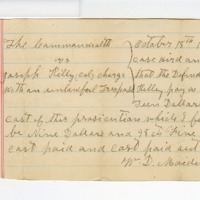 The Commonwealth
vs
Joseph Kelly, col, charge
with an unlawful Trespass
October 18th 1
case aird an
that the Defend
Kelley pay a
Dollar
cost of the prosecution which I f
be Nine Dollars and 38 cts Fine
cost paid and cost paid out
W. D.